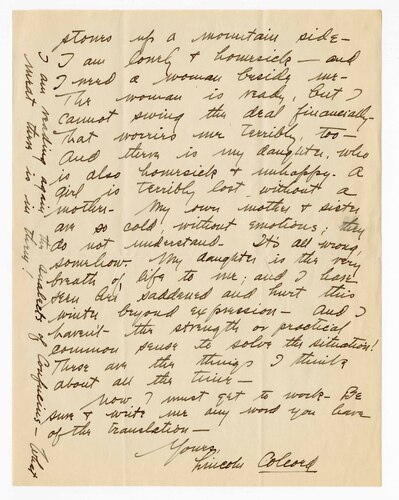 stones up a mountain side—
I am lonely & homesick — and
I need a woman beside me—
The woman is ready, but I
cannot swing the deal financially—
That worries me terribly, too—
And there is my daughter, who
is also homesick & unhappy. A
girl is terribly lost without a
mother— My own mother & sister
are so cold, without emotions; they
do not understand— It's all wrong,
somehow. My daughter is the very
breath of life to me; and I have
seen her saddened and hurt this
winter beyond expression — And I
haven't the strength or practical
common sense to solve the situation!
These are the things I think
about all the time—
Now I must get to work— Be
sure & write me any word you have
of the translation—
Yours,
Lincoln Colcord
I am reading again the Analects of Confucius — What
meat there is in them!